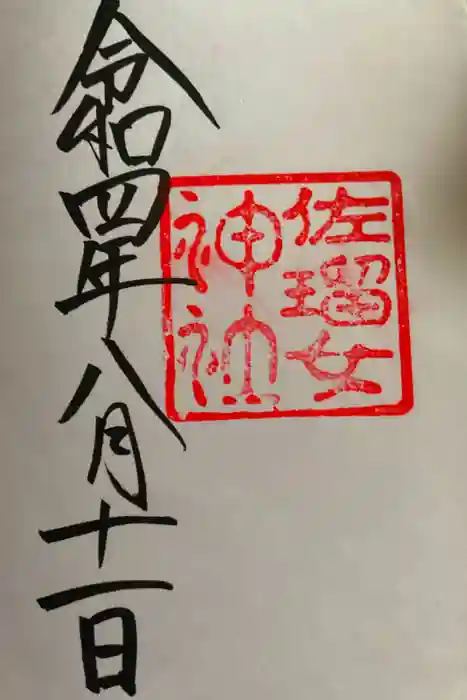 佐瑠女
神社
令和四年八月十一日